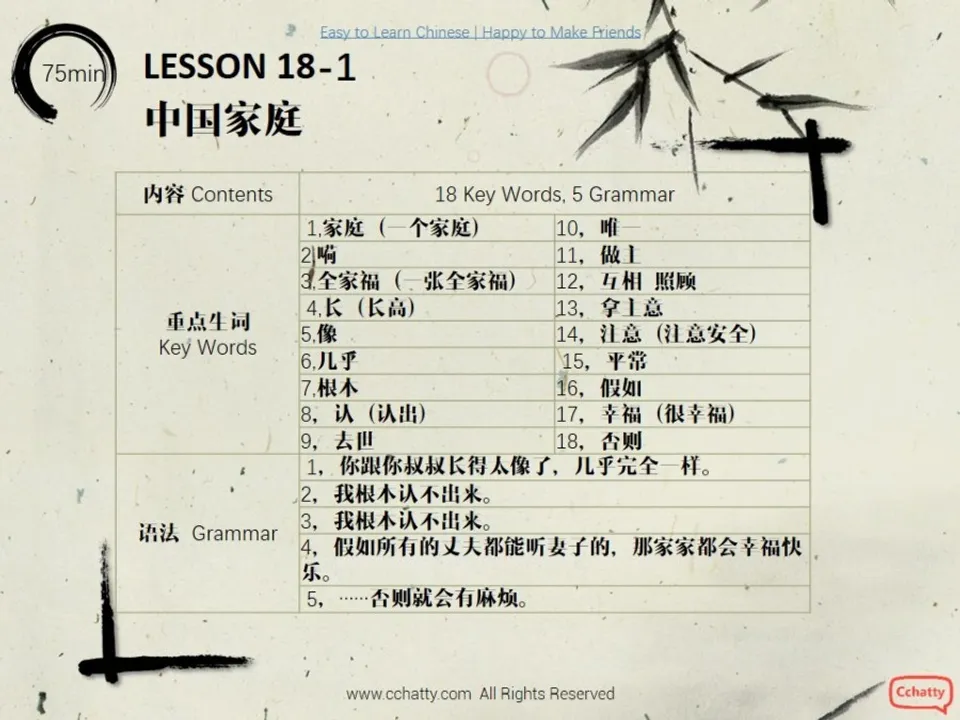 Easy to Learn Chinese | Happy to Make Friends
75min
LESSON 18-1
中国家庭
内容 Contents
18 Key Words, 5 Grammar
重点生词
Key Words
1,家庭（一个家庭）
2,嗬
3,全家福（一张全家福）
4,长（长高）
5,像
6,几乎
7,根本
8，认（认出）
9，去世
10，唯一
11，做主
12，互相 照顾
13，拿主意
14，注意（注意安全）
15，平常
16，假如
17，幸福（很幸福）
18，否则
语法 Grammar
1，你跟你叔叔长得太像了，几乎完全一样。
2，我根本认不出来。
3，我根本认不出来。
4，假如所有的丈夫都能听妻子的，那家家都会幸福快
乐。
5，……否则就会有麻烦。
www.cchatty.com All Rights Reserved
Cchatty